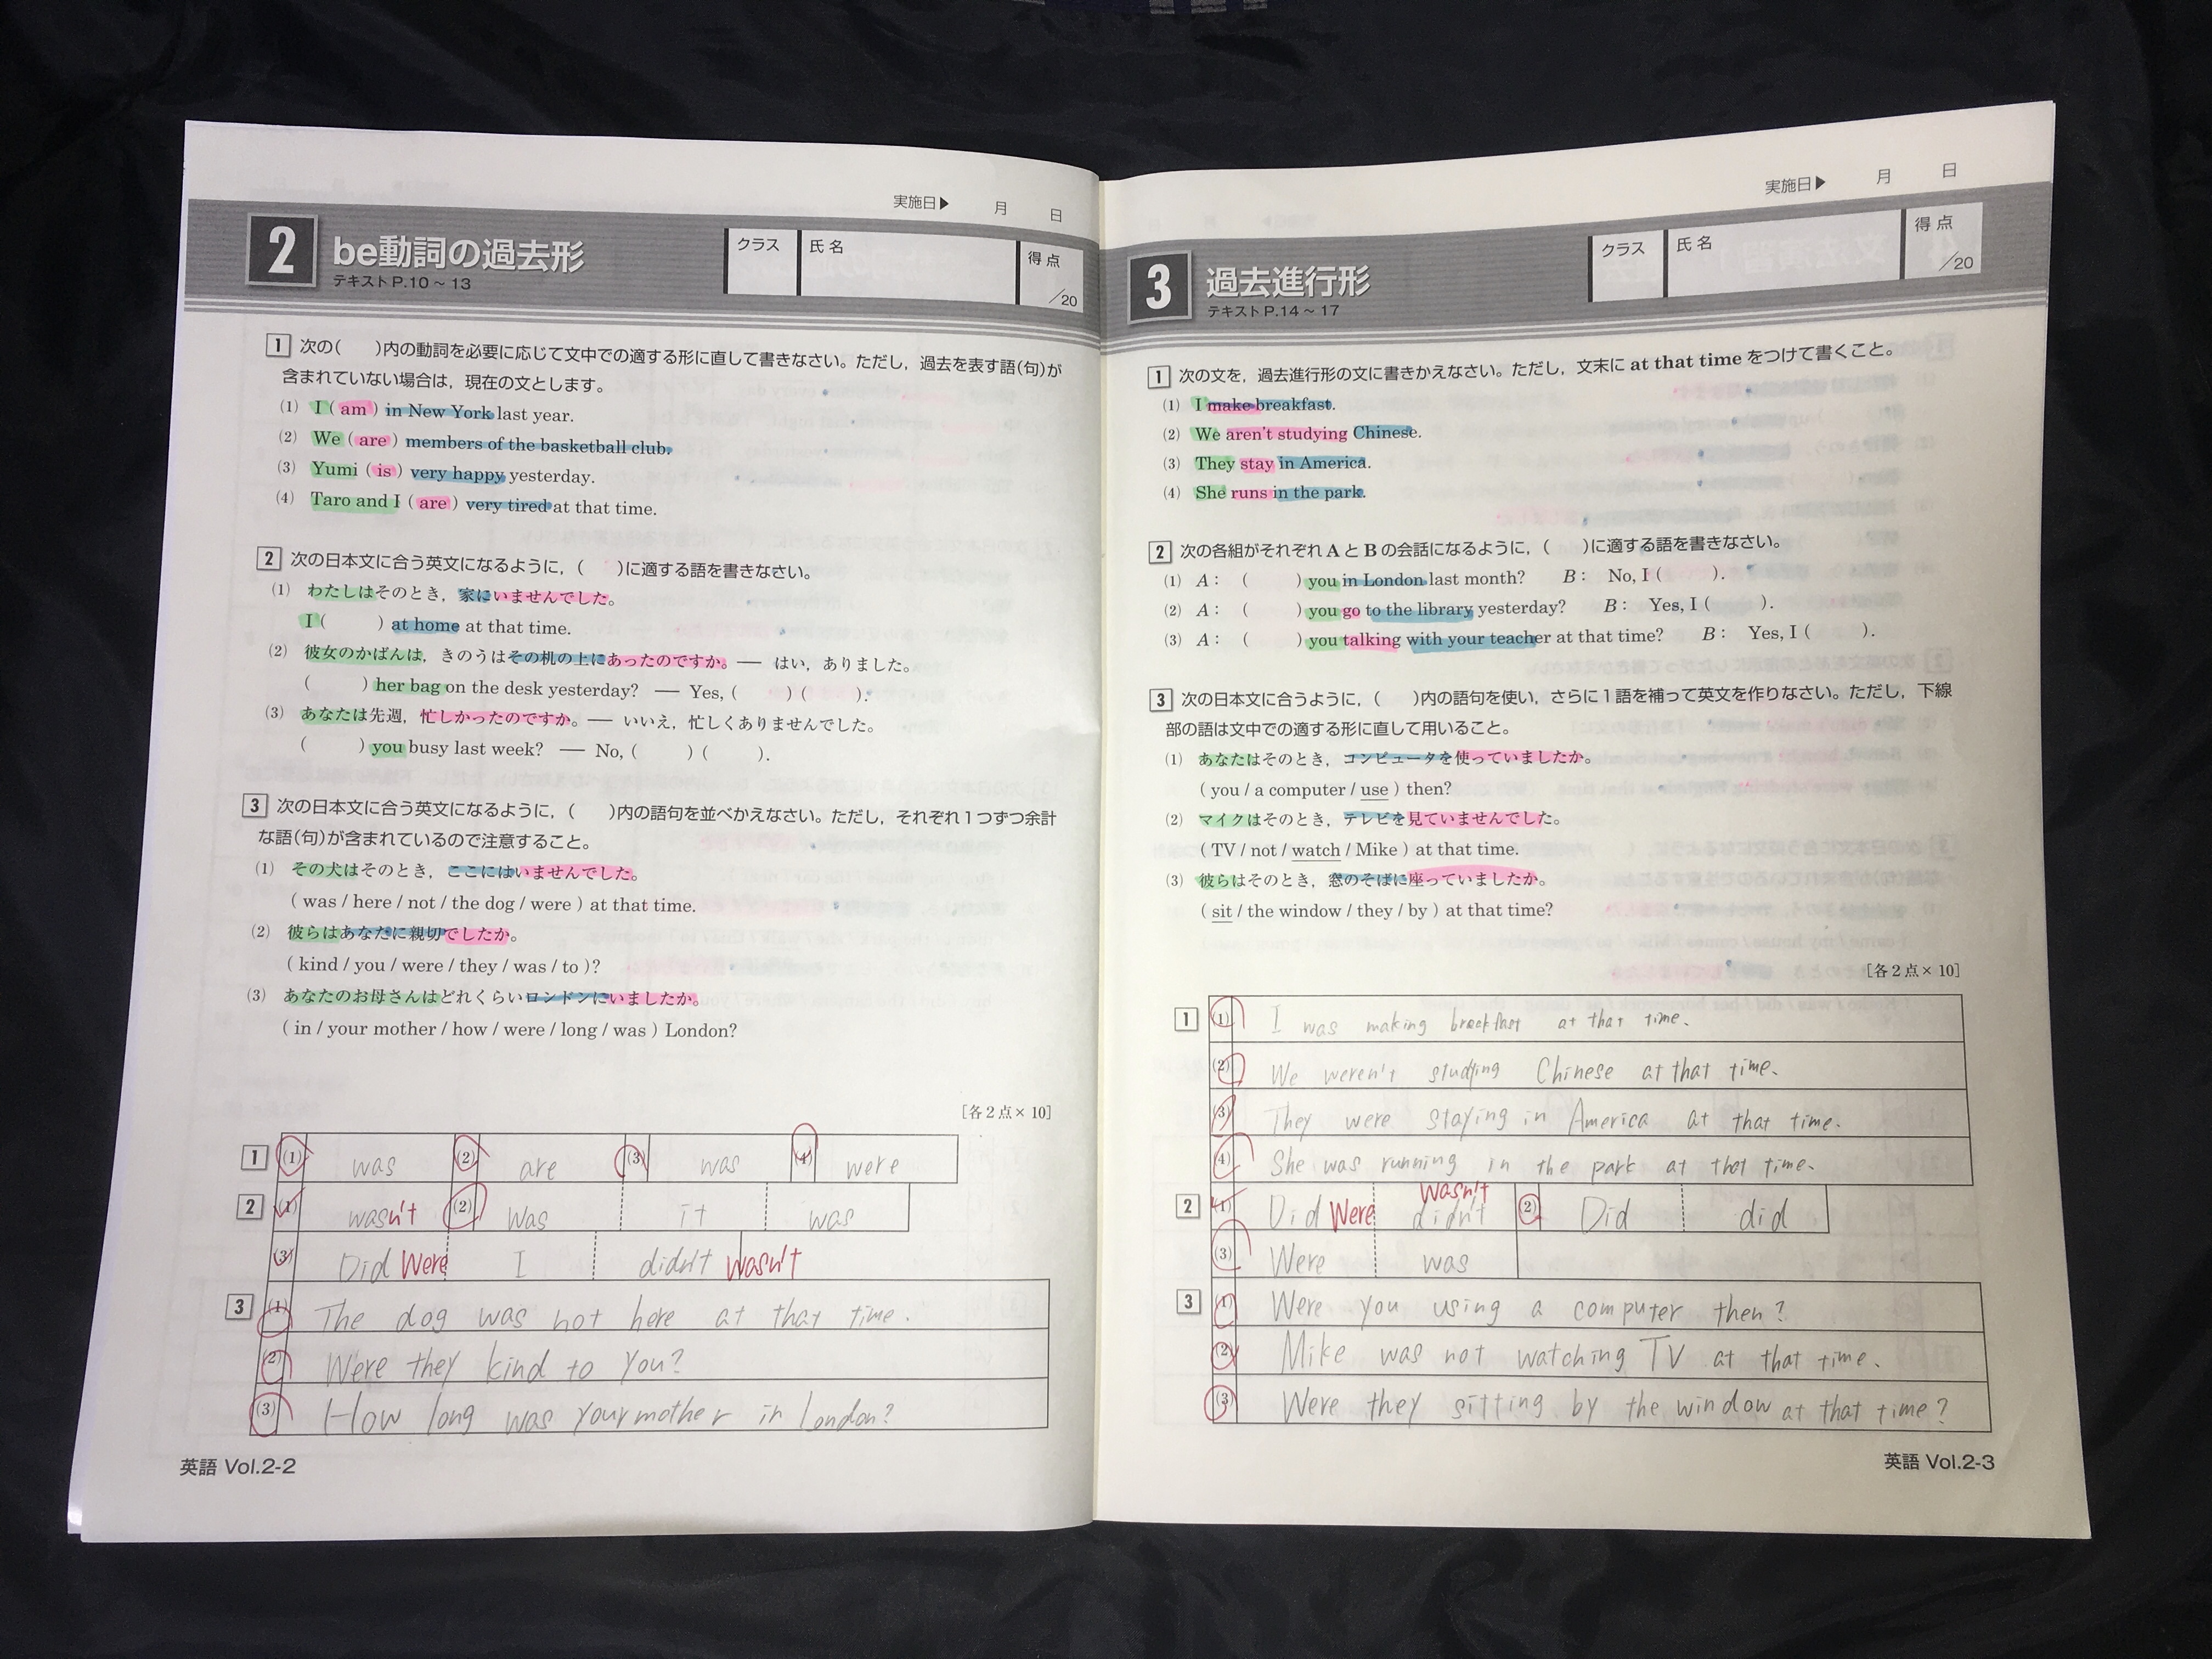 実施日▶ 月 日
2 be動詞の過去形
テキストP.10～13
クラス 氏名 得点 ／20
1 次の( )内の動詞を必要に応じて文中での適する形に直して書きなさい。ただし，過去を表す語(句)が
含まれていない場合は，現在の文とします。
(1) I ( am ) in New York last year.
(2) We ( are ) members of the basketball club.
(3) Yumi ( is ) very happy yesterday.
(4) Taro and I ( are ) very tired at that time.
2 次の日本文に合う英文になるように，( )に適する語を書きなさい。
(1) わたしはそのとき，家にいませんでした。
I ( ) at home at that time.
(2) 彼女のかばんは，きのうはその机の上にあったのですか。― はい，ありました。
( ) her bag on the desk yesterday? ― Yes, ( ) ( ).
(3) あなたは先週，忙しかったのですか。― いいえ，忙しくありませんでした。
( ) you busy last week? ― No, ( ) ( ).
3 次の日本文に合う英文になるように，( )内の語句を並べかえなさい。ただし，それぞれ1つずつ余計
な語(句)が含まれているので注意すること。
(1) その犬はそのとき，ここにはいませんでした。
( was / here / not / the dog / were ) at that time.
(2) 彼らはあなたに親切でしたか。
( kind / you / were / they / was / to )?
(3) あなたのお母さんはどれくらいロンドンにいましたか。
( in / your mother / how / were / long / was ) London?
[各2点×10]
1 (1) was (2) are (3) was (4) were
2 (1) wasn't (2) Was it was
(3) Did Were I didn't wasn't
3 (1) The dog was not here at that time.
(2) Were they kind to you?
(3) How long was your mother in London?
英語 Vol.2-2
実施日▶ 月 日
3 過去進行形
テキストP.14～17
クラス 氏名 得点 ／20
1 次の文を，過去進行形の文に書きかえなさい。ただし，文末に at that time をつけて書くこと。
(1) I make breakfast.
(2) We aren't studying Chinese.
(3) They stay in America.
(4) She runs in the park.
2 次の各組がそれぞれAとBの会話になるように，( )に適する語を書きなさい。
(1) A： ( ) you in London last month? B： No, I ( ).
(2) A： ( ) you go to the library yesterday? B： Yes, I ( ).
(3) A： ( ) you talking with your teacher at that time? B： Yes, I ( ).
3 次の日本文に合うように，( )内の語句を使い，さらに1語を補って英文を作りなさい。ただし，下線
部の語は文中での適する形に直して用いること。
(1) あなたはそのとき，コンピュータを使っていましたか。
( you / a computer / use ) then?
(2) マイクはそのとき，テレビを見ていませんでした。
( TV / not / watch / Mike ) at that time.
(3) 彼らはそのとき，窓のそばに座っていましたか。
( sit / the window / they / by ) at that time?
[各2点×10]
1 (1) I was making breakfast at that time.
(2) We weren't studying Chinese at that time.
(3) They were staying in America at that time.
(4) She was running in the park at that time.
2 (1) Did Were didn't wasn't (2) Did did
(3) Were was
3 (1) Were you using a computer then?
(2) Mike was not watching TV at that time.
(3) Were they sitting by the window at that time?
英語 Vol.2-3